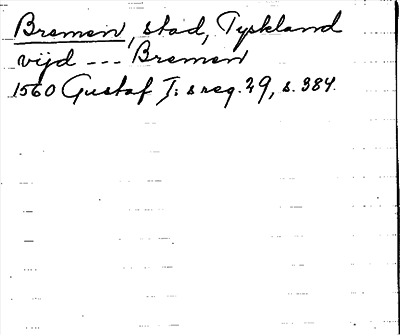 Bremen, stad, Tyskland
vijd --- Bremen
1560 Gustaf I:s reg. 29, s. 384.